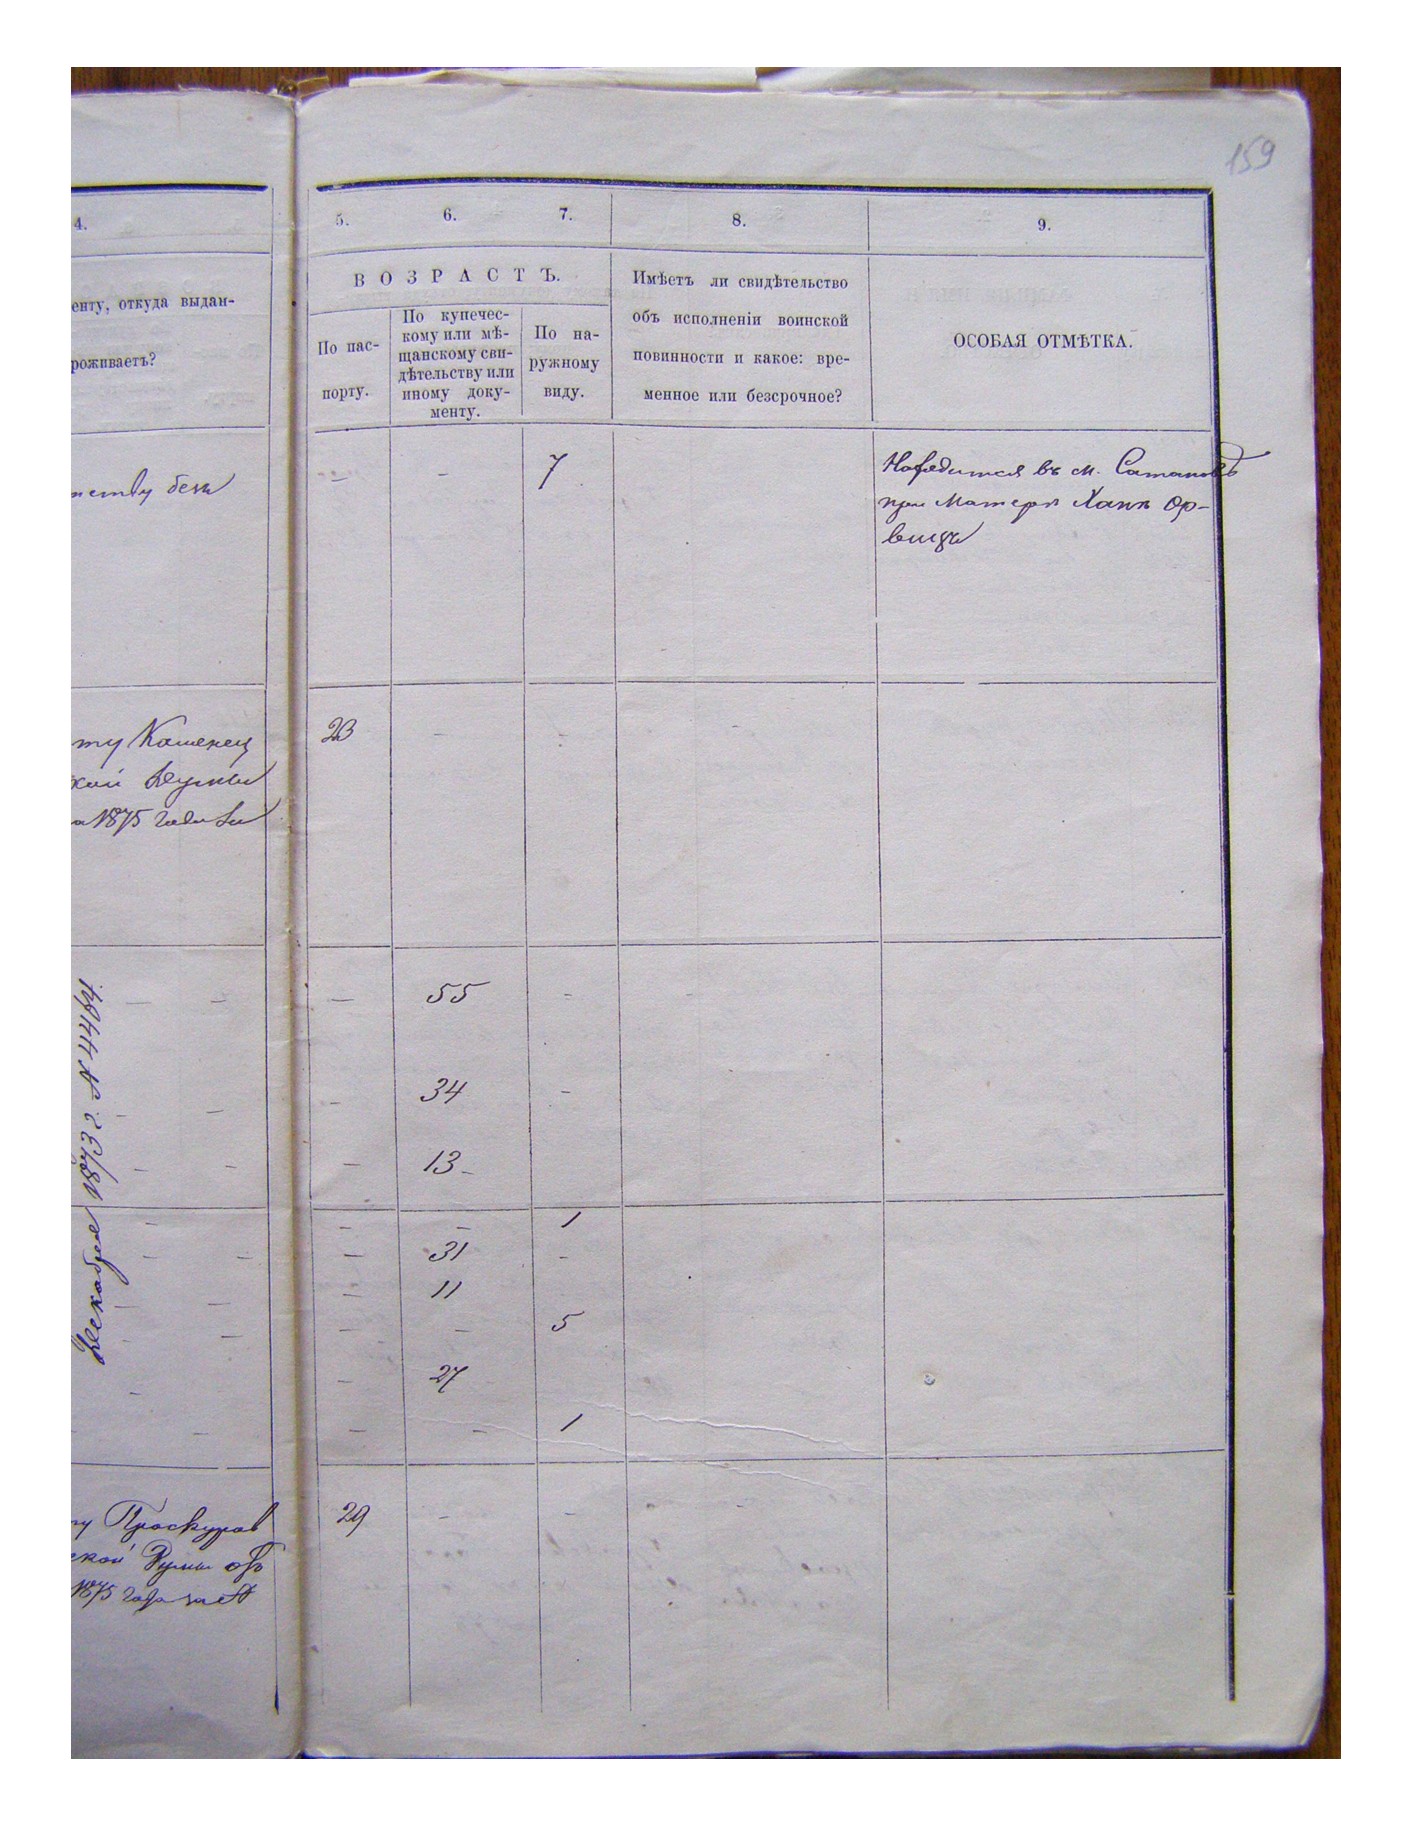 159
4.
5.
6.
7.
8.
9.
енту, откуда выдан-
роживаетъ?
ВОЗРАСТЪ.
По пас-
порту.
По купечес-
кому или мѣ-
щанскому сви-
дѣтельству или
иному доку-
менту.
По на-
ружному
виду.
Имѣетъ ли свидѣтельство
объ исполненіи воинской
повинности и какое: вре-
менное или безсрочное?
ОСОБАЯ ОТМѢТКА.
— – 7
Находится въ м. Сатановѣ
при Матери Ханѣ
ту Каменец
кой Думы
1875 года
23 – – –
— — — 55 – –
Декабря 1873 г. N 4464.
— — — 34 –
— — — 13 –
— — – 1
— — — 31 –
— — — 11
— — — – 5
— — 27
— — – 1
ту Проскуров
ской Думы отъ
1875 года за N
29 – – –